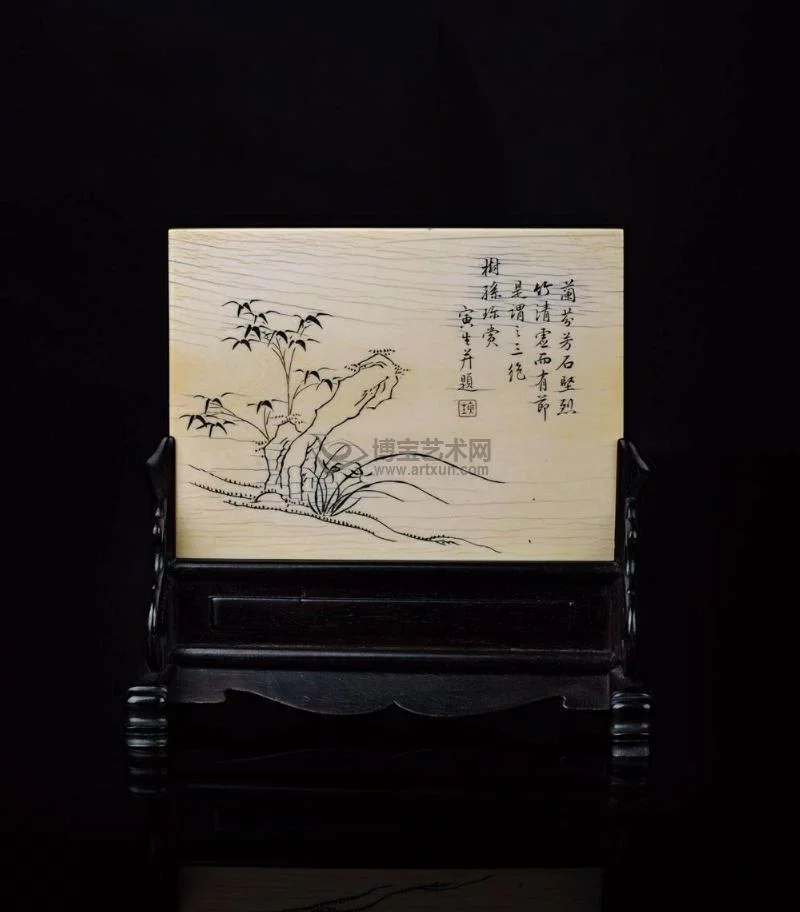 蘭芬芳石堅烈
竹清虛而有節
是謂之三絶
樹孫珍賞
寅生并題
博宝艺术网
www.artxun.com